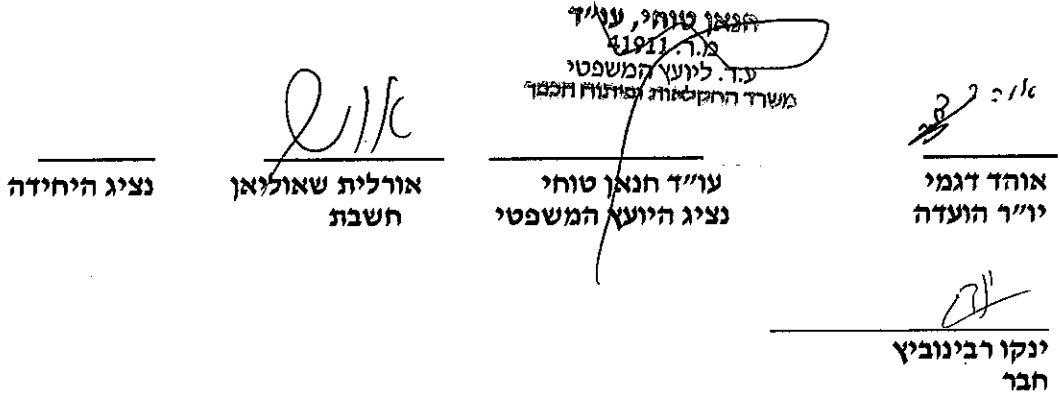 חנאן טוחי, עו״ד
מ.ר. 41911
ע.ד. ליועץ המשפטי
משרד החקלאות ופיתוח הכפר
אוהד דגמי
יו״ר הועדה
עו״ד חנאן טוחי
נציג היועץ המשפטי
אורלית שאוליאן
חשבת
נציג היחידה
ינקו רבינוביץ
חבר